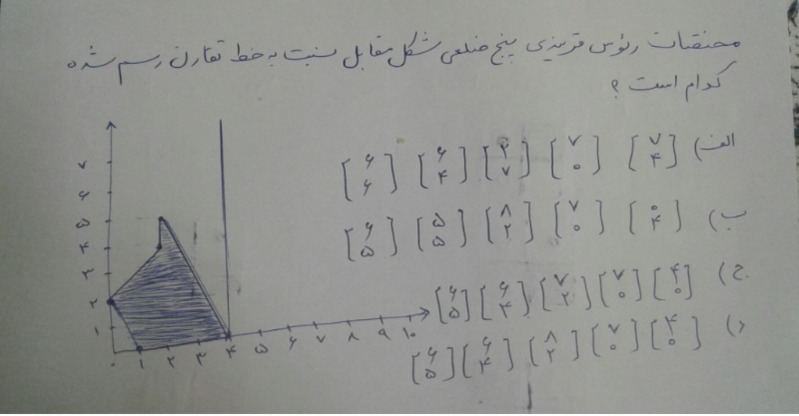 مختصات رئوس قرینه‌ی پنج ضلعی شکل مقابل نسبت به خط تقارن رسم شده
کدام است ؟
الف) [۷ ۴] [۷ ۰] [۲ ۷] [۶ ۴] [۶ ۶]
ب) [۰ ۴] [۷ ۰] [۸ ۲] [۵ ۵] [۶ ۵]
ج) [۴ ۰] [۷ ۰] [۷ ۲] [۶ ۴] [۶ ۵]
د) [۴ ۰] [۷ ۰] [۸ ۲] [۶ ۴] [۶ ۵]
۷
۶
۵
۴
۳
۲
۱
۰ ۱ ۲ ۳ ۴ ۵ ۶ ۷ ۸ ۹ ۱۰